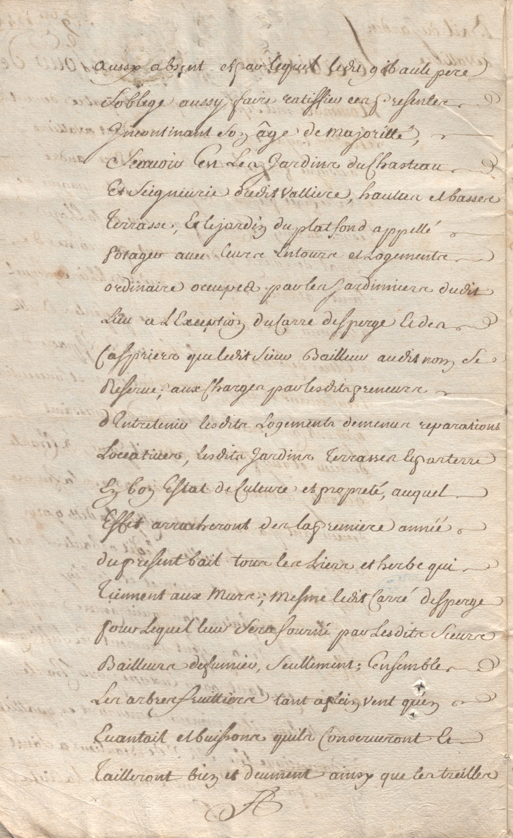 aussy absent et par lequel ledit gibault pere
soblege aussy faire ratiffier ces presentes
Incontinant son âge de majorité,
Scavoir Est Les Jardins du Chasteau
Et Seigneurie dudit Valliere, hautes et basses
Terrasse, Et le jardin du plat fond appellé
potager avec leurs Entours et Logements
ordinaire occupez par les Jardiniers dudit
Lieu a L'Exception du Carré desperge Et des
Caspriers que ledit Sieur Bailleur audit nom Se
Reserve, aux Charges par lesdits preneurs
d'Entretenir lesdits Logements de menus reparations
Locatives, lesdits Jardins Terrasses Et parterre
En bon Estat de Culture et propreté, auquel
Effet arracheront des la premiere année
du present bail tous les Lierre et herbe qui
Tiennent aux Murs; mesme ledit Carré desperge
pour Lequel leur Sera fourni par Lesdits Sieurs
Bailleurs de fumier, Seullement; Ensemble
Les arbres fruittiers tant a plein vent qu'en
Evantail et buissons quils Conserveront Et
Tailleront bien et deument ainsy que les treilles